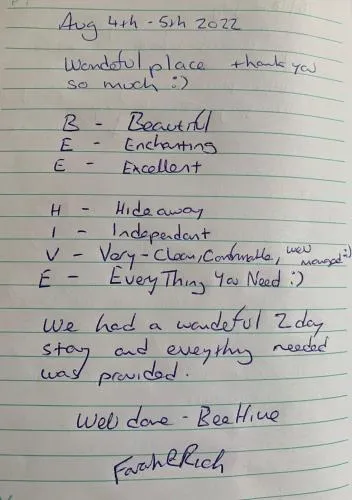 Aug 4th - 5th 2022
Wondeful place thank you
so much :)
B - Beautiful
E - Enchanting
E - Excellent
H - Hideaway
I - Independent
V - Very - Clean, Comfortable, well managed :)
E - EveryThing You Need :)
We had a wondeful 2 day
stay and everything needed
was provided.
Well done - BeeHive
Farah & Rich